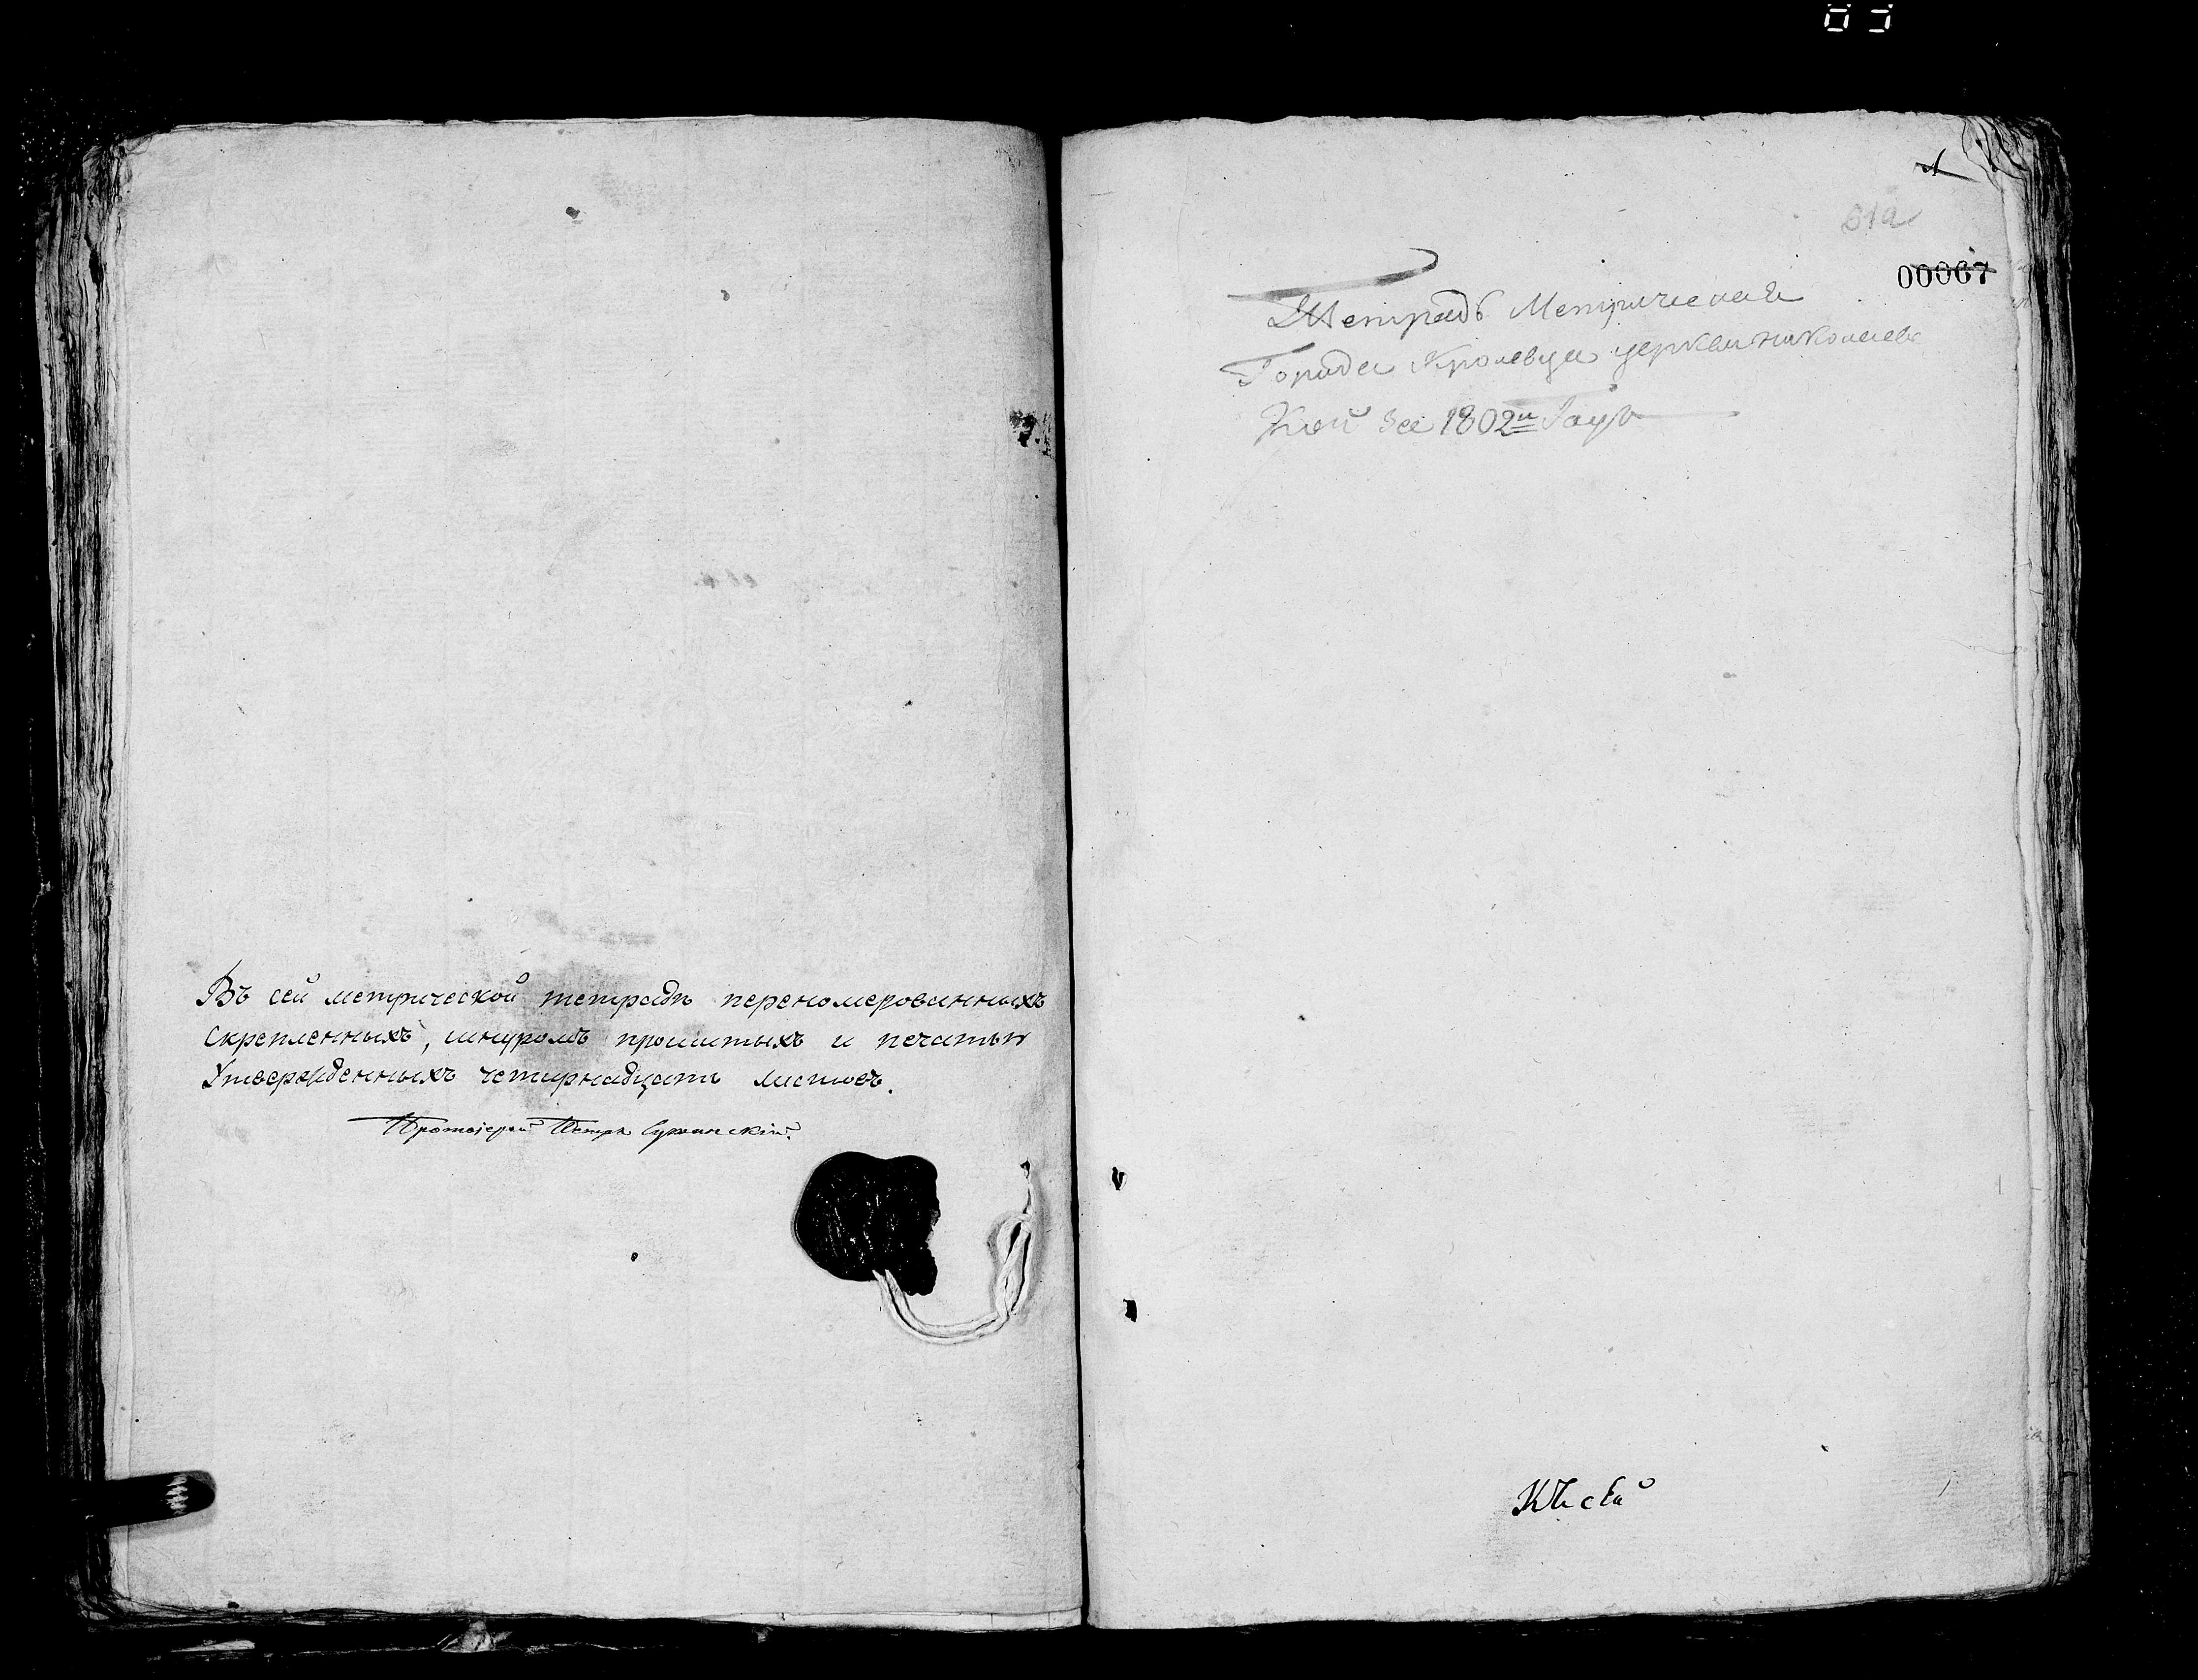 Въ сей метрической тетрадѣ переномерованныхъ
скрепленныхъ, шнуромъ прошитыхъ и печатью
Утвержденныхъ четырнадцать листовъ.
Протоіерей Петръ
1
61а
00067
Тетрадь Метрическая
Города Кролевца церкви николаевс
Кой за 1802й Годъ